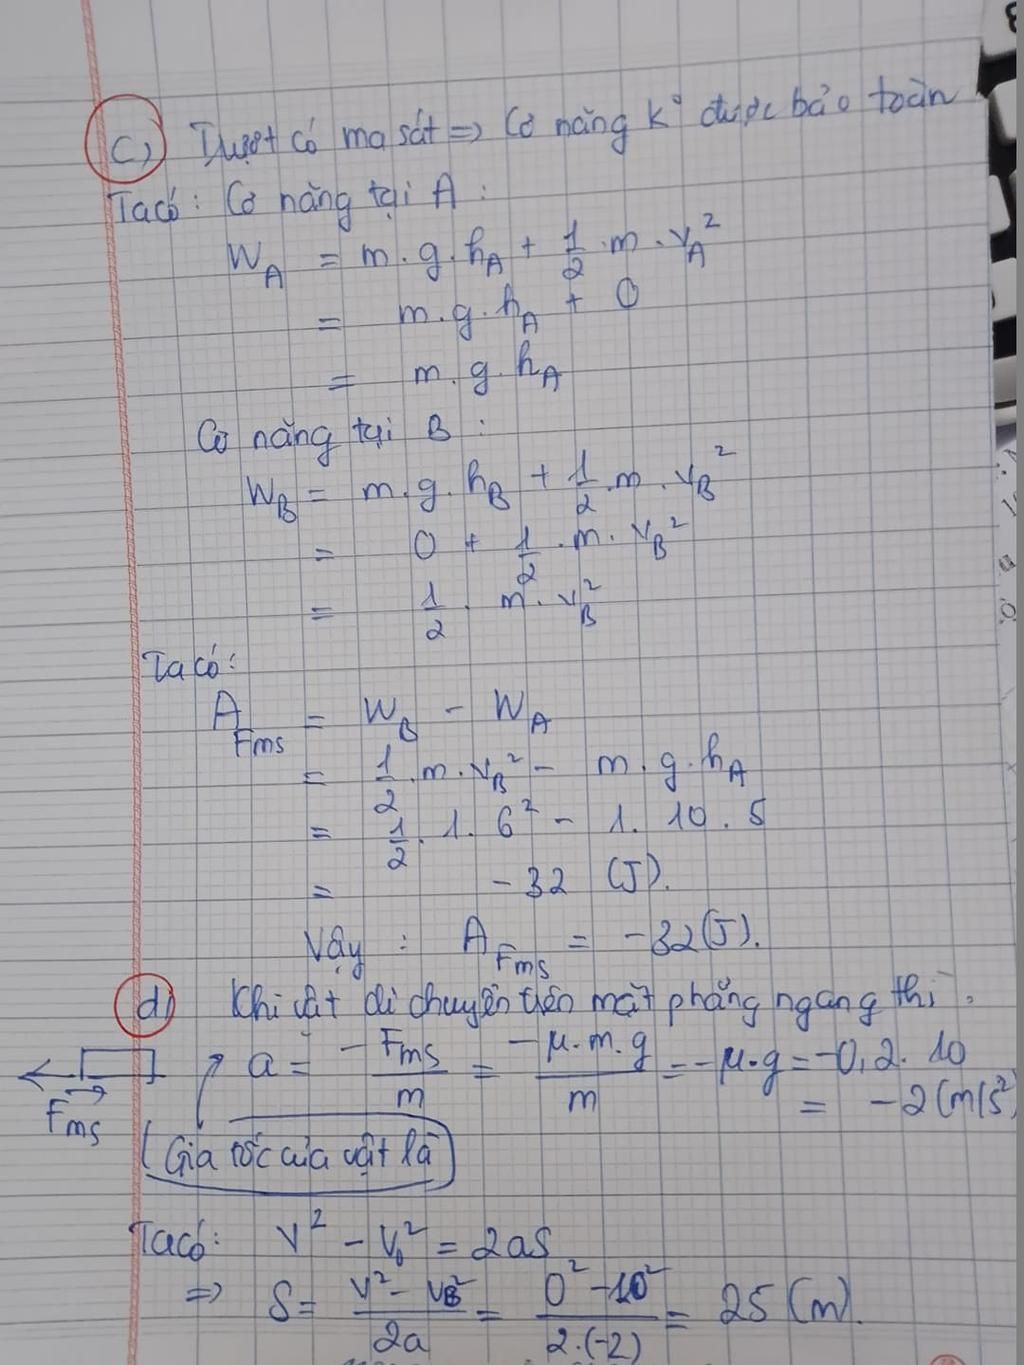 c) Trượt có ma sát => Cơ năng k° được bảo toàn
Ta có: Cơ năng tại A:
W_A = m.g.h_A + 1/2 .m.v_A²
= m.g.h_A + 0
= m.g.h_A
Cơ năng tại B:
W_B = m.g.h_B + 1/2 .m.v_B²
= 0 + 1/2 .m.v_B²
= 1/2 . m.v_B²
Ta có:
A_Fms = W_B - W_A
= 1/2 .m.v_B² - m.g.h_A
= 1/2 .1.6² - 1.10.5
= -32 (J).
Vậy: A_Fms = -32(J).
d) Khi vật di chuyển trên mặt phẳng ngang thì:
a = -Fms/m = -μ.m.g/m = -μ.g = -0,2.10
= -2(m/s²)
Fms
Gia tốc của vật là
Ta có: v² - v₀² = 2aS
=> S = (v² - v_B²)/2a = (0² - 10²)/2.(-2) = 25 (m).